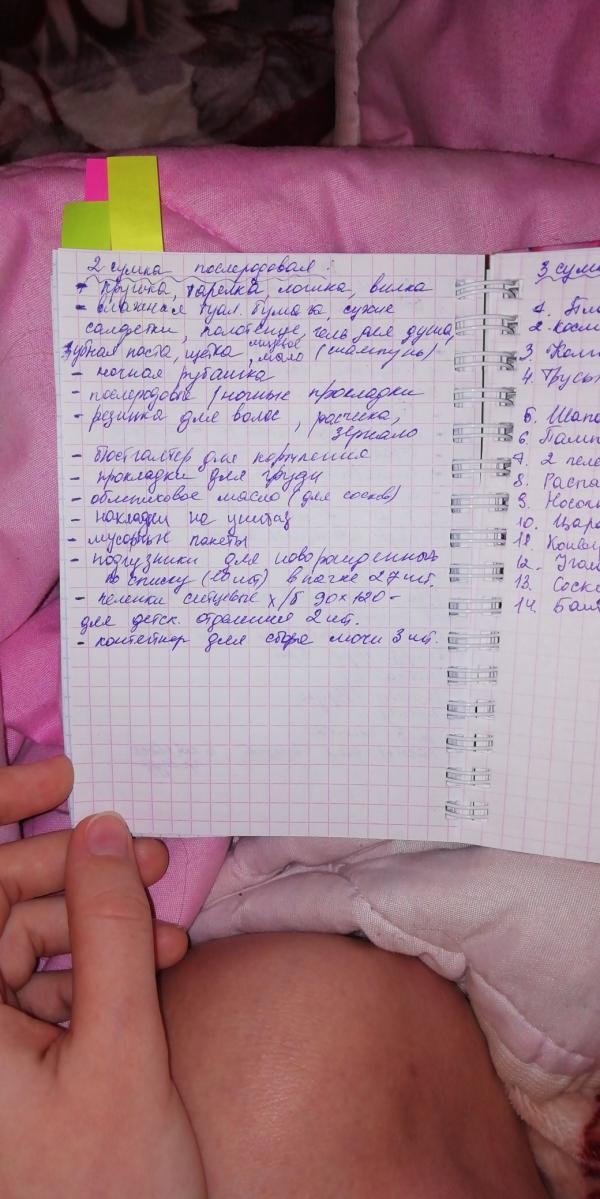 2 сумка послеродовая:
- кружка, тарелка, ложка, вилка
- влажная туал. бумага, сухие
салфетки, полотенце, гель для душа,
зубная паста, щётка, жидкое мыло (шампунь)
- ночная рубашка
- послеродовые / ночные прокладки
- резинка для волос, расчёска,
зеркало
- бюстгалтер для кормления
- прокладки для груди
- облепиховое масло (для сосков)
- накладки на унитаз
- мусорные пакеты
- подгузники для новорожденных
по списку (28 шт) в пачке 27 шт.
- пеленки ситцевые х/б 90х120 -
для детск. отделения 2 шт.
- контейнер для сбора мочи 3 шт.
3 сумк
1.
2. Косм
3. Комп
4. Трусы
5. Шапо
6. Памп
7. 2 пеле
8. Распа
9. Носоч
10. Цара
11. Конве
12.
13. Соск
14.